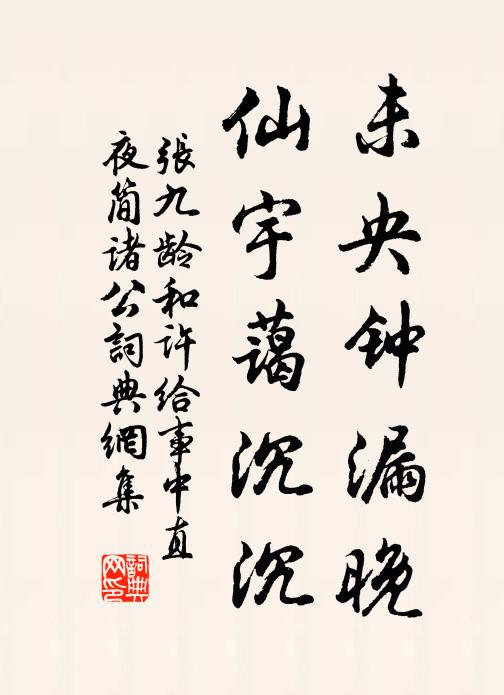 未央钟漏晚
仙宇蔼沉沉
張九龄和许给事中直
夜简诸公詞典網集
詞典网印